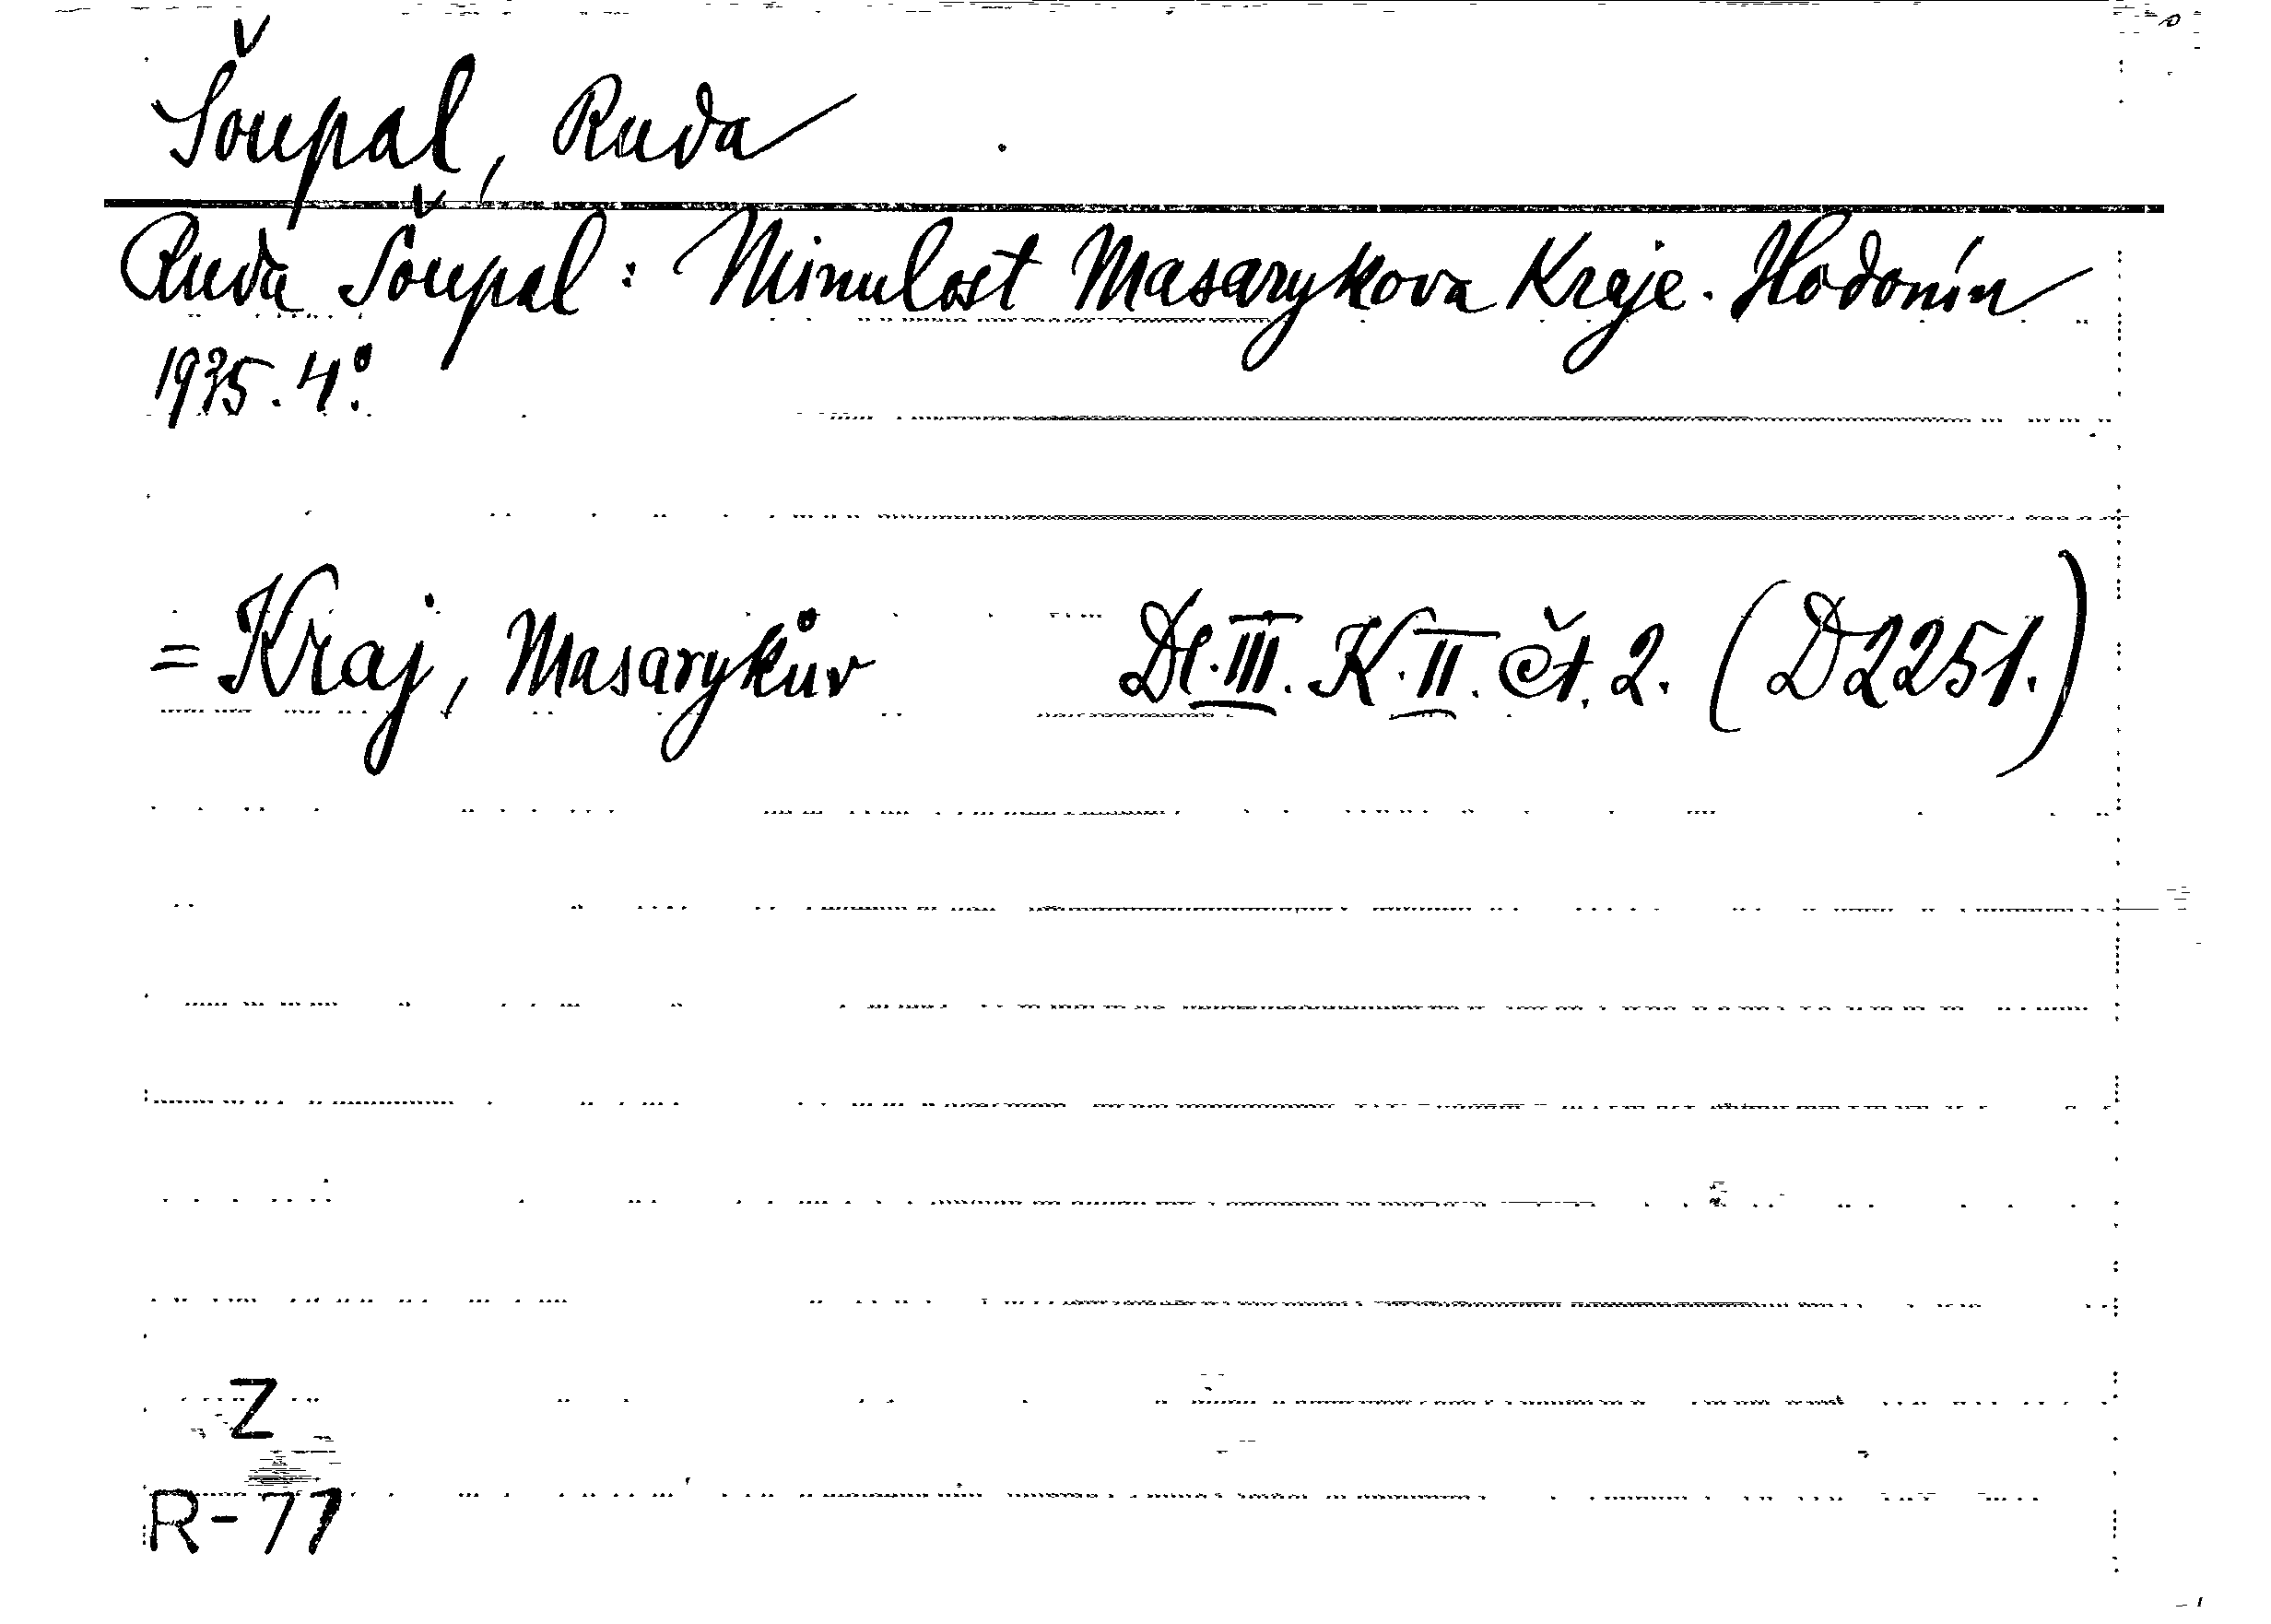 Šoupal, Ruda
Ruda Šoupal: Minulost Masarykova Kraje. Hodonín
1935. 4°.
= Kraj, Masarykův Dl. III. K. II. čt. 2. (D2251.)
Z
R-77